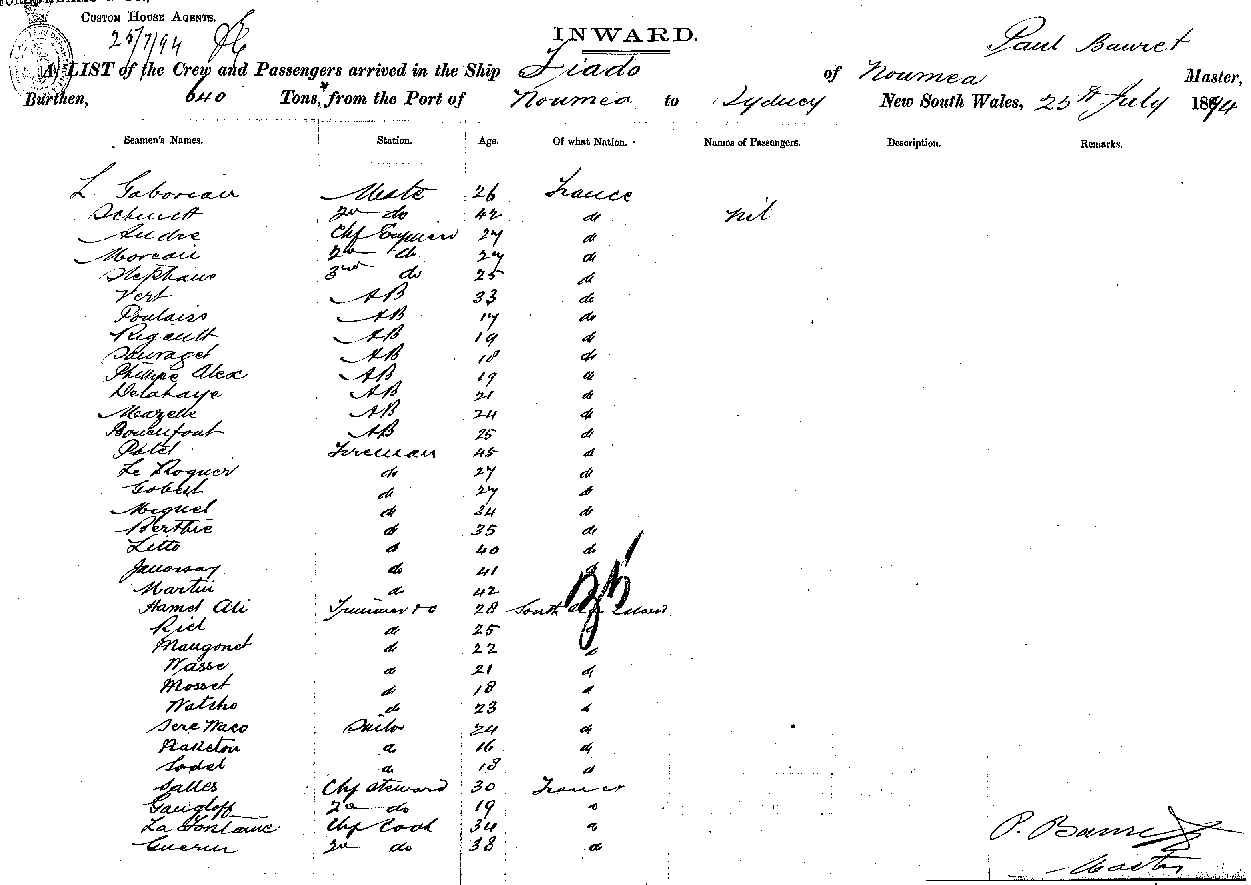 CUSTOM HOUSE AGENTS.
25/7/94
INWARD.
Paul Bauret
A LIST of the Crew and Passengers arrived in the Ship Fiado of Noumea Master,
Burthen, 640 Tons, from the Port of Noumea to Sydney New South Wales, 25th July 1894
Seamen's Names. Station. Age. Of what Nation. Names of Passengers. Description. Remarks.
L. Gaboriau Mate 26 France
Schmitt 2nd do 42 do nil
Andre Chf Engineer 27 do
Moreau 2nd do 27 do
Stephans 3rd do 25 do
Vert AB 33 do
Poulains AB 17 do
Rigault AB 19 do
Sauvaget AB 18 do
Phillipe Alex AB 19 do
Delahaye AB 21 do
Mazelle AB 24 do
Bonenfont AB 25 do
Patel Fireman 45 do
Le Roguer do 27 do
Gobert do 27 do
Miguel do 34 do
Berthie do 35 do
Letto do 40 do
Janoway do 41 do
Martin do 42
Hamet Ali Trimmer 28 South Island
Riel do 25
Maugonet do 22 do
Wasse do 21 do
Mosset do 18 do
Watcho do 23 do
Sere Waco Sailor 24 do
Naketon do 16 do
Sodel do 18 do
Salles Chf Steward 30 France
Gangloff 2nd do 19 do
La Fontaine Chf Cook 34 do
Guerin 2nd do 38 do
35
P. Bauret
Master